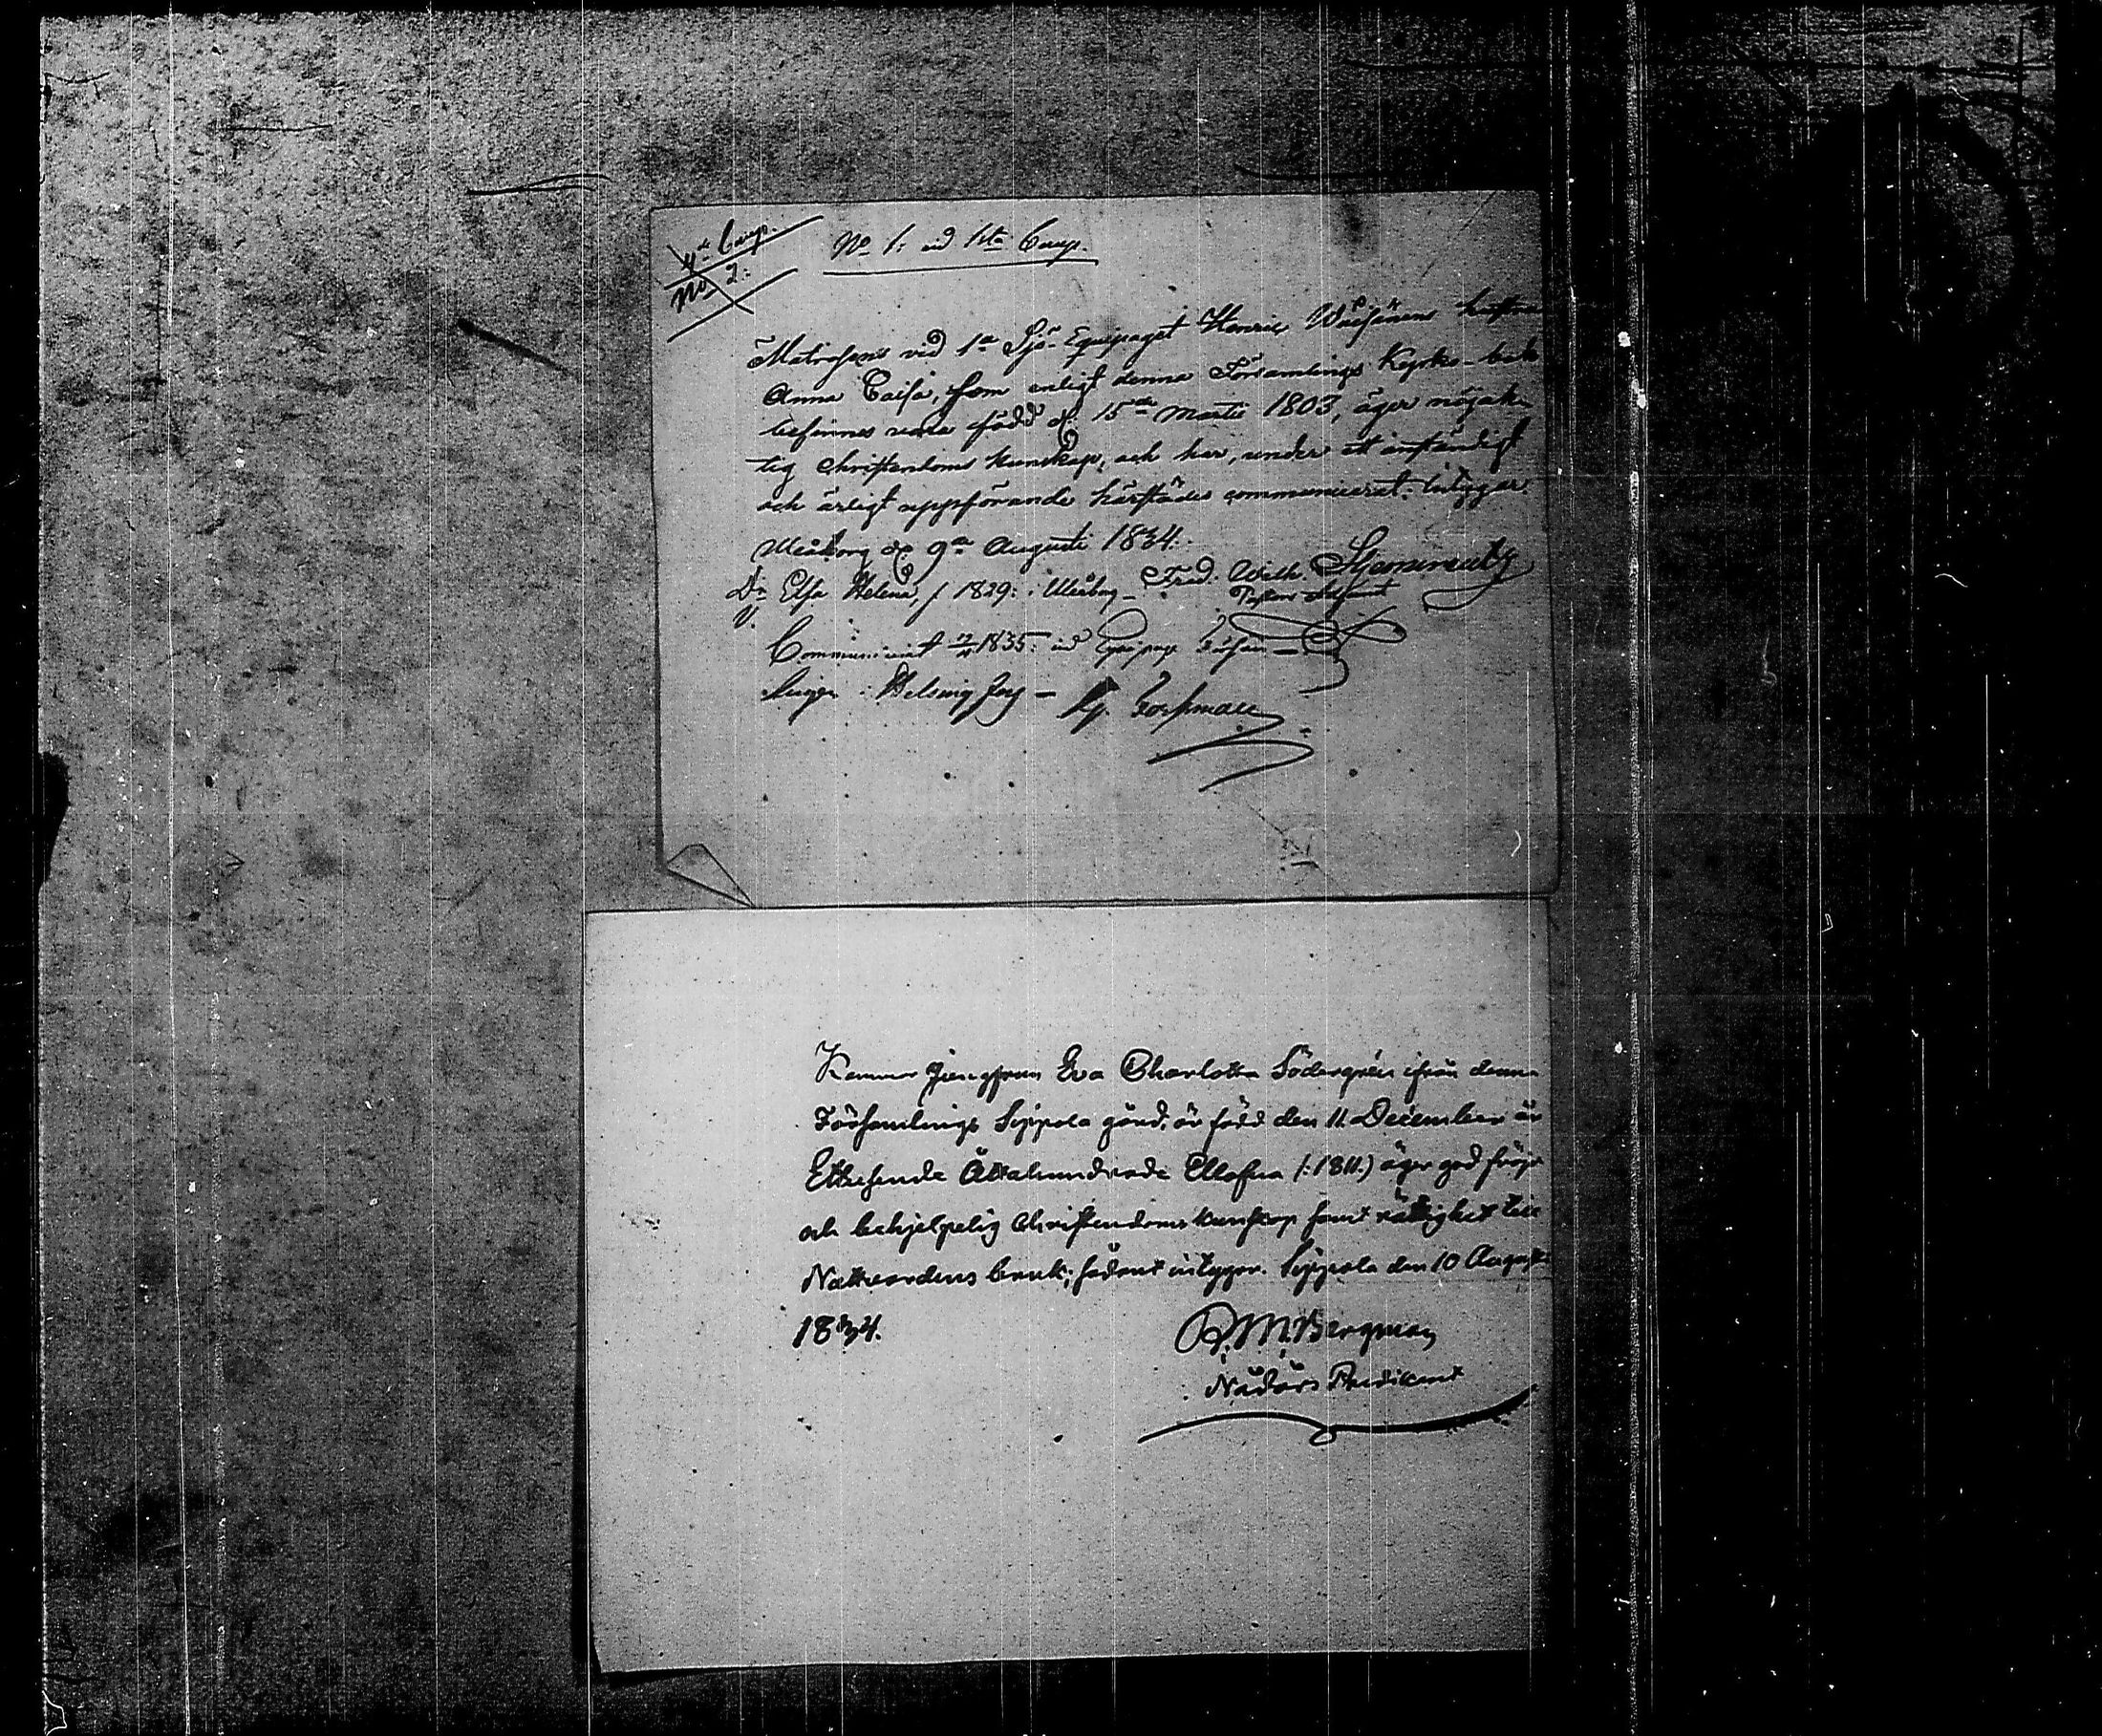 4de Comp.
No 2:
No 1: vid 1sta Comp.
Matrosens vid 1a Sjö-Equipaget Henric hustru
Anna Caisa, som enligt denna Församlings Kyrko-bok
befinnes vara född d. 15de Martii 1803, äger nöjak-
tig Christendoms kunskap, och har, under ett anständigt
och ärligt uppförande härstädes communicerat: intygar.
Uleåborg d. 9de Augusti 1834.
Dr Elsa Helena, f 1829: i Uleåborg Fred. Wilh. Stjernvall
V. Pastors Adjunct
Communicerat 1835: vid Equipags Försam-
lingen i Helsingfors — Forsman
Kammar Jungfrun Eva Charlotta Södergrén ifrån denna
Församlings Sippola gård, är född den 11. December år
Ettusende Åttahundrade Ellofva (:1811.) äger god fräjd
och behjelpelig Christendoms kunskap samt rättighet till
Nattvardens bruk; sådant intygar. Sippola den 10 Augusti
1834. Bergman
Nådårs Predikant